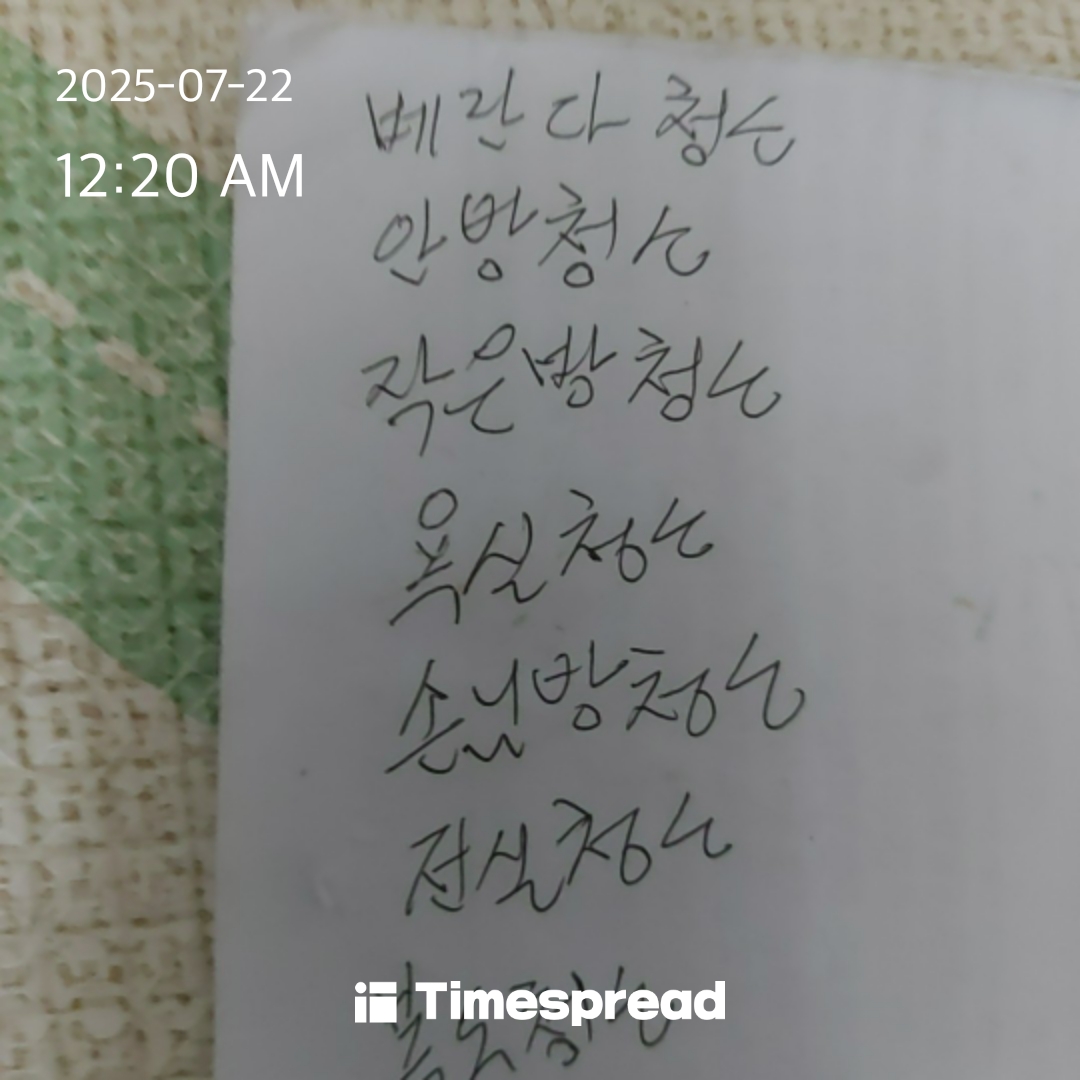 2025-07-22
12:20 AM
베란다 청소
안방청소
작은방 청소
욕실 청소
손님방청소
전실청소
Timespread